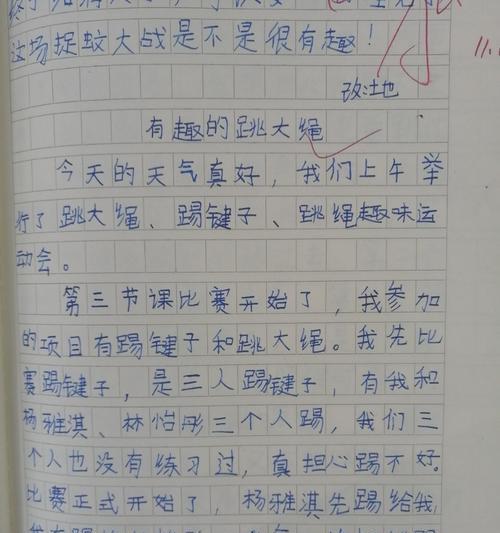 这场捉蚊大战是不是很有趣！
改：地
11.
有趣的跳大绳
今天的天气真好，我们上午举
行了跳大绳、踢键子、跳绳趣味运
动会。
第三节课比赛开始了，我参加
的项目有踢键子和跳大绳。我先比
赛踢键子，是三人踢键子，有我和
杨雅淇、林怡彤三个人踢，我们三
个人也没有练习过，真担心踢不好。
比赛正式开始了，杨雅淇先踢给我，